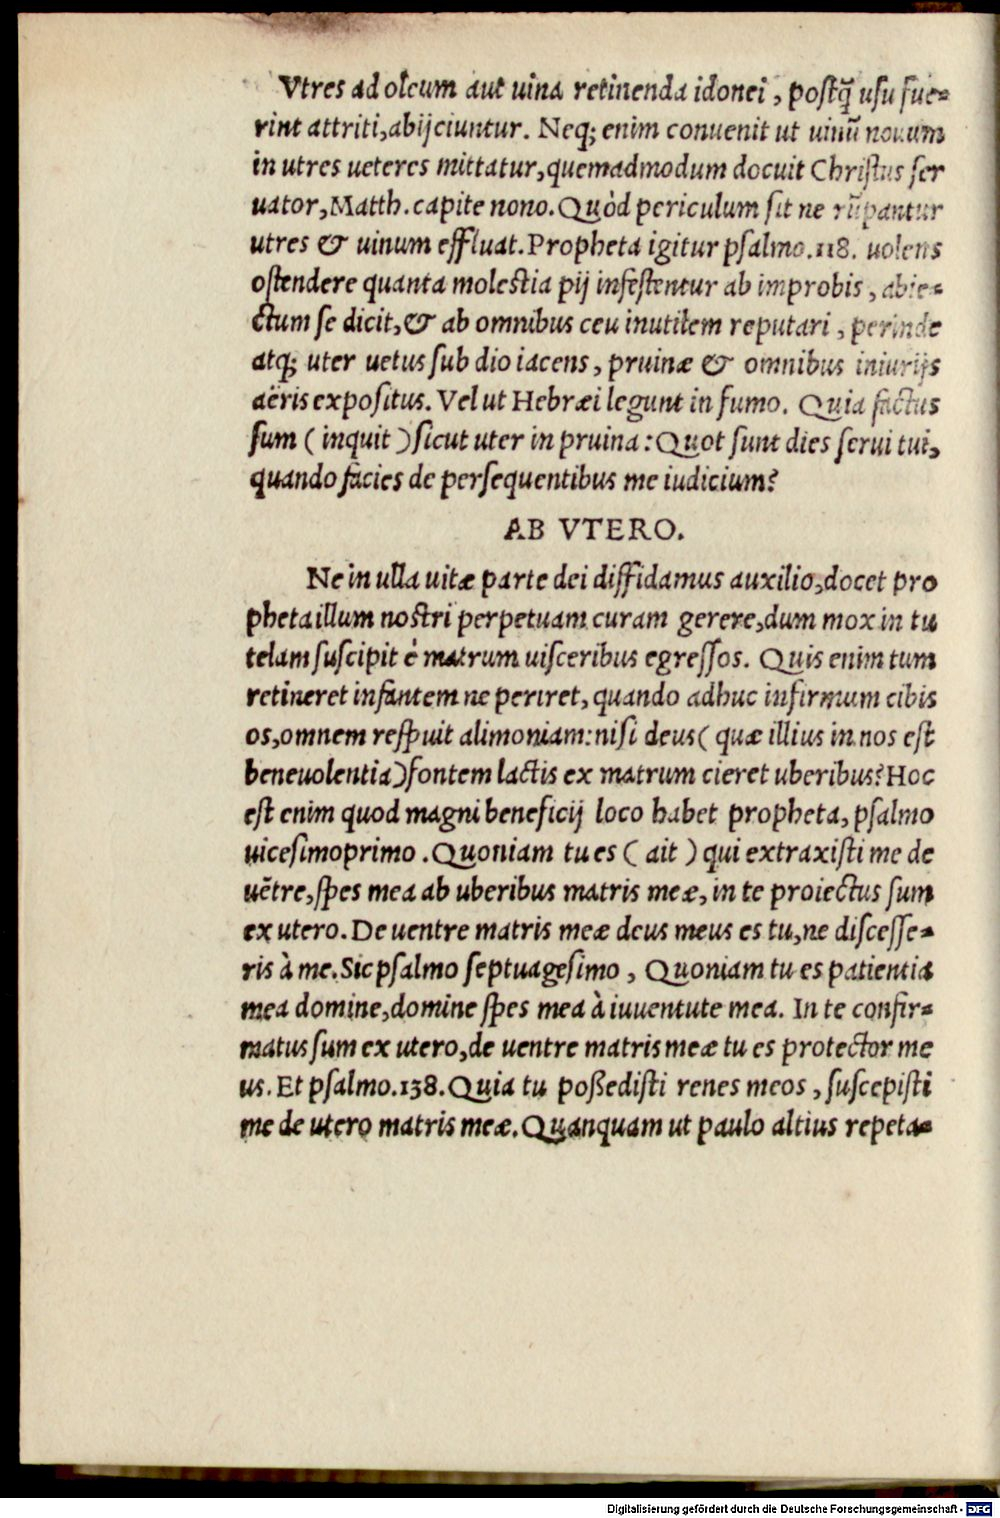 Vtres ad oleum aut uina retinenda idonei, postq̃ usu fue-
rint attriti, abijciuntur. Neq; enim conuenit ut uinũ nouum
in utres ueteres mittatur, quemadmodum docuit Christus ser
uator, Matth. capite nono. Quòd periculum sit ne rũpantur
utres & uinum effluat. Propheta igitur psalmo. 118. uolens
ostendere quanta molestia pij infestentur ab improbis, abie-
ctum se dicit, & ab omnibus ceu inutilem reputari, perinde
atq; uter uetus sub dio iacens, pruinæ & omnibus iniurijs
aëris expositus. Vel ut Hebræi legunt in fumo. Quia factus
sum ( inquit ) sicut uter in pruina: Quot sunt dies serui tui,
quando facies de persequentibus me iudicium?
AB VTERO.
Ne in ulla uitæ parte dei diffidamus auxilio, docet pro
pheta illum nostri perpetuam curam gerere, dum mox in tu
telam suscipit è matrum uisceribus egressos. Quis enim tum
retineret infantem ne periret, quando adhuc infirmum cibis
os, omnem respuit alimoniam: nisi deus ( quæ illius in nos est
beneuolentia) fontem lactis ex matrum cieret uberibus? Hoc
est enim quod magni beneficij loco habet propheta, psalmo
uicesimoprimo. Quoniam tu es ( ait ) qui extraxisti me de
uẽtre, spes mea ab uberibus matris meæ, in te proiectus sum
ex utero. De uentre matris meæ deus meus es tu, ne discesse-
ris à me. Sic psalmo septuagesimo, Quoniam tu es patientia
mea domine, domine spes mea à iuuentute mea. In te confir-
matus sum ex utero, de uentre matris meæ tu es protector me
us. Et psalmo. 138. Quia tu poßedisti renes meos, suscepisti
me de utero matris meæ. Quanquam ut paulo altius repeta-
Digitalisierung gefördert durch die Deutsche Forschungsgemeinschaft - DFG